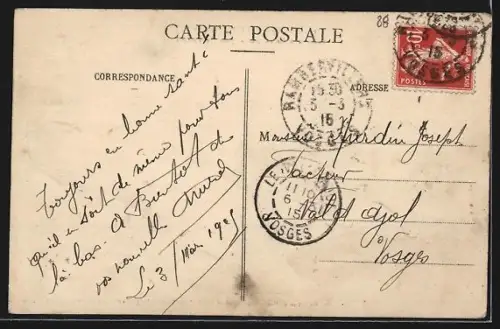 28
CARTE POSTALE
CORRESPONDANCE
ADRESSE
Toujours en bonne santé
qu'il en soit de même pour tous
là bas. A Bientôt de
vos nouvelle
Le 3 Mars 1915
Monsieur Jourdin Joseph
facteur
Val d'Ajol
Vosges
RAMBERVILLERS
15 30
5 - 3
15
VOSGES
LE
11 10
6
15
VOSGES
10
POSTES
15
VOSGES